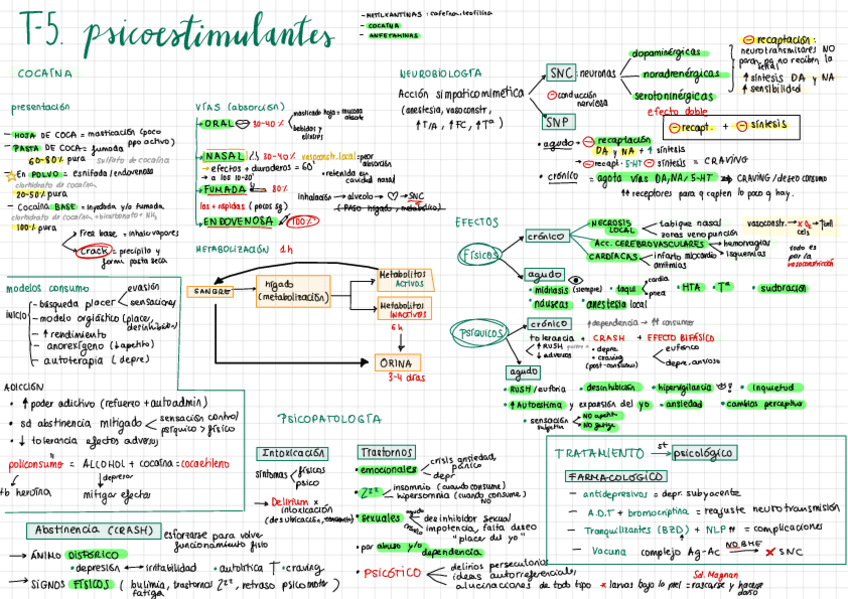 T-5. psicoestimulantes
- METILXANTINAS: cafeína, teofilina
- COCAÍNA
- ANFETAMINAS
COCAÍNA
presentación
- HOJA DE COCA = masticación (poco ppo activo)
- PASTA DE COCA = fumada
60-80% pura sulfato de cocaína
En POLVO = esnifada/endovenosa
clorhidrato de cocaína
20-50% pura
- Cocaína BASE = inyectada y/o fumada
clorhidrato de cocaína + bicarbonato + NH3
100% pura
Free base = inhalar vapores
Crack = precipito y formo pasta seca
VÍAS (absorción)
- ORAL 30-40%
masticado hoja = mucosa
bebidas y elixires
- NASAL 30-40% vasoconstr. local = peor absorción
→ efectos + duraderos = 60'
→ a los 10-20'
• retenida en cavidad nasal
- FUMADA 80%
las + rápidas (pocos sg)
inhalación → alveolo → SNC
- ENDOVENOSA 100%
METABOLIZACIÓN 1h
SANGRE
hígado (metabolización)
Metabolitos ACTIVOS
Metabolitos INACTIVOS
6h
ORINA
3-4 días
modelos consumo
inicio
- búsqueda placer
evasión
sensaciones
- modelo orgiástico (placer, desinhibición)
- ↑ rendimiento
- anorexígeno (↓apetito)
- autoterapia (depre)
ADICCIÓN
• ↑ poder adictivo (refuerzo + autoadmin)
• sd abstinencia mitigado
sensación control
psíquico > físico
• ↓ tolerancia efectos adversos
policonsumo = ALCOHOL + cocaína = cocaetileno
tb heroína
depresor
mitigar efectos
Abstinencia (CRASH)
esforzarse para volver funcionamiento fislo
→ ÁNIMO DISFÓRICO
• depresión ↔ irritabilidad • autolítica ↑ • craving
→ SIGNOS FÍSICOS (bulimia, trastornos zzz, retraso psicomotor)
fatiga
NEUROBIOLOGÍA
Acción simpaticomimética
(anestesia, vasoconstr, ↑T/A, ↑FC, ↑Tª)
SNC: neuronas
⊖ conducción nerviosa
SNP
dopaminérgicas
noradrenérgicas
serotoninérgicas
⊖ recaptación:
neurotransmisores NO paran pq no reciben la señal
↑ síntesis DA y NA
↑ sensibilidad
efecto doble
⊖ recapt. + ⊖ síntesis
• agudo → ⊖ recaptación DA y NA + ↑ síntesis
→ ⊖ recapt 5-HT ⊖ síntesis = CRAVING
• crónico = agota vías DA, NA, 5-HT → CRAVING/deseo consumo
↑↑ receptores para q capten lo poco q hay.
EFECTOS
FÍSICOS
crónico
NECROSIS LOCAL
tabique nasal
zonas venopunción
vasoconstr. → x O2 → ↑ cels
Acc. CEREBROVASCULARES
hemorragias
isquemias
CARDÍACAS
infarto miocardio
arritmias
todo es por la vasoconstricción
agudo
• midriasis (siempre) • taqui
cardia
pnea
• HTA • Tª • sudoración
• náuseas • anestesia local
PSÍQUICOS
crónico
↑ dependencia → ↑↑ consumir
tolerancia + CRASH + EFECTO BIFÁSICO
↑ RUSH
↓ adversos
• depre.
• craving
(post-consumo)
eufórico
depre, ansioso
agudo
• RUSH/euforia • desinhibición • hipervigilancia • Inquietud
• ↑ Autoestima y expansión del yo • ansiedad • cambios perceptivos
• sensación subjetiva
NO apetito
NO fatiga
PSICOPATOLOGÍA
Intoxicación
síntomas
físicos
psico
→ Delirium x intoxicación
Trastornos
• emocionales
crisis ansiedad, pánico
depr
• zzz
insomnio (cuando consume)
hipersomnia (cuando NO consume)
• sexuales
agudo desinhibidor sexual
crónico impotencia, falta deseo
"placer del yo"
• por abuso y/o dependencia
• PSICÓTICO
delirios persecutorios
ideas autorreferenciales
alucinaciones de todo tipo
Sd. Magnan
* larvas bajo la piel = rascarse y hacerse daño
TRATAMIENTO 1st → psicológico
FARMACOLÓGICO
- antidepresivos = depr. subyacente
- A.D.T + bromocriptina = reajuste neurotransmisión
- Tranquilizantes (BZD) + NLP ↑↑ = complicaciones
- Vacuna complejo Ag-Ac NO BHE → x SNC